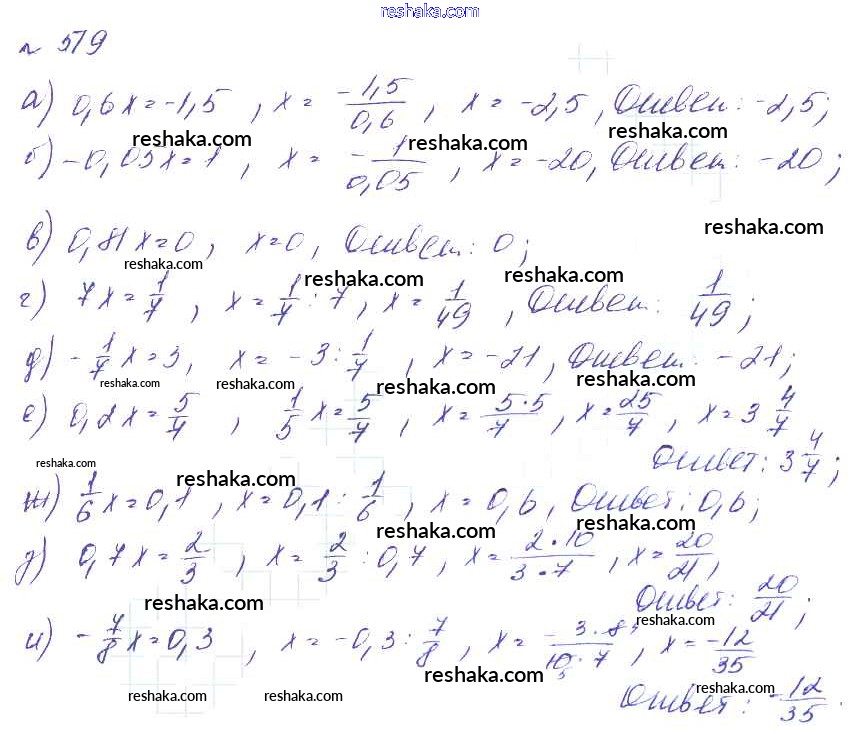 reshaka.com
№ 579
а) 0,6x = -1,5 , x = -1,5/0,6 , x = -2,5 , Ответ: -2,5;
reshaka.com reshaka.com reshaka.com
б) -0,05x = 1 , x = -1/0,05 , x = -20, Ответ: -20;
reshaka.com
в) 0,81x = 0 , x = 0 , Ответ: 0;
reshaka.com reshaka.com reshaka.com
г) 7x = 1/7 , x = 1/7 : 7 , x = 1/49 , Ответ: 1/49;
д) -1/7 x = 3, x = -3 : 1/7 , x = -21, Ответ: -21;
reshaka.com reshaka.com reshaka.com reshaka.com
е) 0,2x = 5/7 , 1/5 x = 5/7 , x = 5·5/7 , x = 25/7 , x = 3 4/7
Ответ: 3 4/7;
reshaka.com reshaka.com
ж) 1/6 x = 0,1 , x = 0,1 : 1/6 , x = 0,6, Ответ: 0,6;
reshaka.com reshaka.com
з) 0,7x = 2/3 , x = 2/3 : 0,7 , x = 2·10/3·7 , x = 20/21,
Ответ: 20/21;
reshaka.com reshaka.com reshaka.com
и) -7/8 x = 0,3 , x = -0,3 : 7/8 , x = -3·8⁴/10₅·7 , x = -12/35
reshaka.com reshaka.com reshaka.com reshaka.com
Ответ: -12/35.